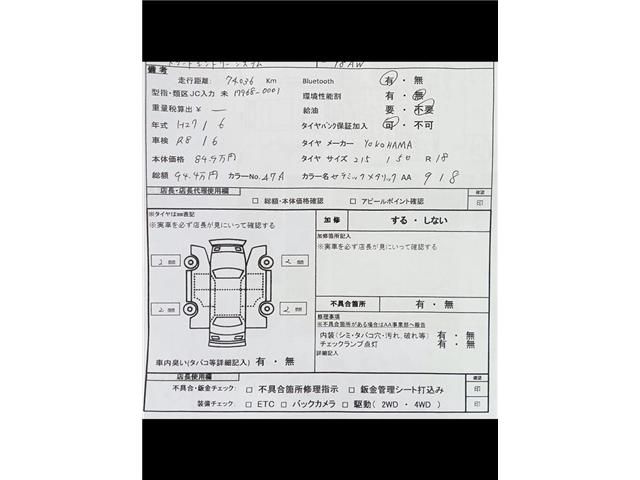 18AW
備考
走行距離: 74036 Km Bluetooth 有・無
型指・類区JC入力 未 17968-0001 環境性能割 有・無
重量税算出¥ — 給油 要・不要
年式 H27 / 6 タイヤパンク保証加入 可・不可
車検 R8 / 6 タイヤ メーカー YOKOHAMA
本体価格 84.9万円 タイヤ サイズ 215 / 50 R 18
総額 94.9万円 カラーNo. 47A カラー名 セラミックメタリック AA 918
店長・店長代理使用欄 確認
□ 総額・本体価格確認 □ アピールポイント確認 印
※タイヤは㎜表記
※実車を必ず店長が見にいって確認する
加修 する・しない
加修箇所記入
※実車を必ず店長が見にいって確認する
2 ㎜ 2 ㎜
2 ㎜ 2 ㎜
不具合箇所 有・無
修理事項
※不具合箇所がある場合はAA事業部へ報告
内装(シミ・タバコ穴・汚れ、破れ等) 有・無
チェックランプ点灯 有・無
詳細記入
車内臭い(タバコ等詳細記入) 有・無
店長使用欄 確認
不具合・鈑金チェック: □ 不具合箇所修理指示 □ 鈑金管理シート打込み 印
装備チェック: □ ETC □ バックカメラ □ 駆動( 2WD ・ 4WD ) 印